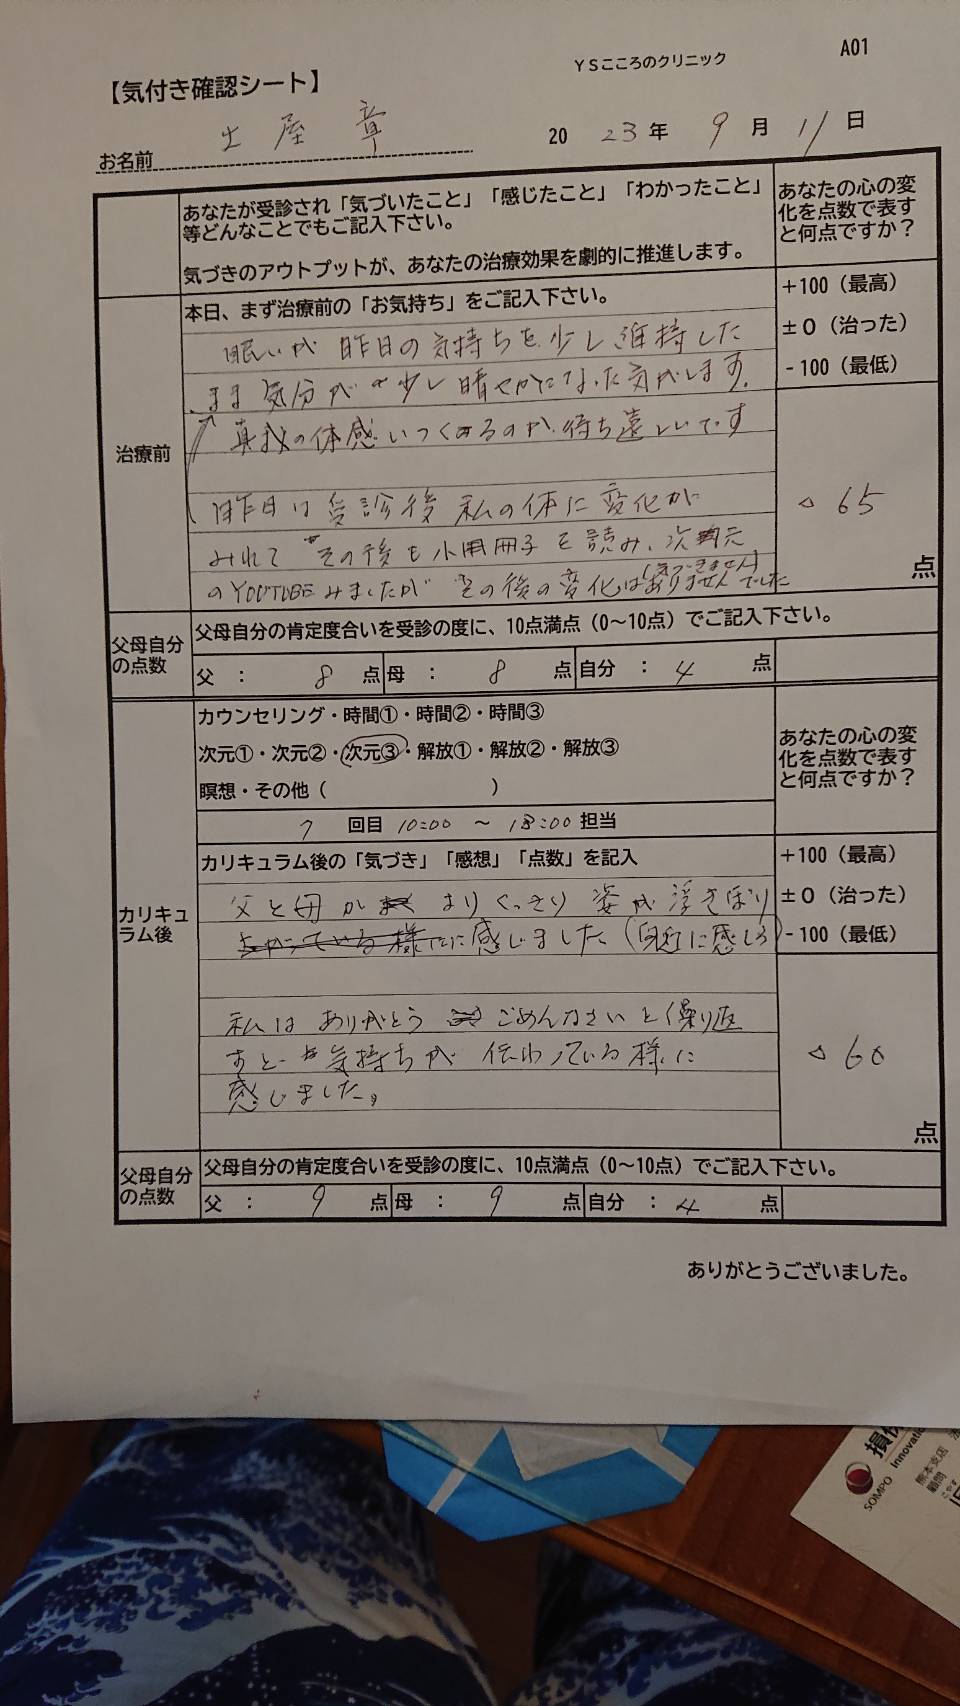 A01
YSこころのクリニック
【気付き確認シート】
お名前 土屋 章 2023年 9月 11日
あなたが受診され「気づいたこと」「感じたこと」「わかったこと」
等どんなことでもご記入下さい。
気づきのアウトプットが、あなたの治療効果を劇的に推進します。
あなたの心の変
化を点数で表す
と何点ですか？
治療前
本日、まず治療前の「お気持ち」をご記入下さい。
眠いが 昨日の気持ちを少し維持した
まま 気分が 少し晴やかになった気がします。
真我の体感 いつくるのか 待ち遠しいです
昨日は受診後 私の体に変化が
みれて その後も小冊子を読み、次元
のYOUTUBEみましたが その後の変化はありませんでした
+100（最高）
±0（治った）
-100（最低）
△ 65
点
父母自分
の点数
父母自分の肯定度合いを受診の度に、10点満点（0～10点）でご記入下さい。
父 ： 8 点 母 ： 8 点 自分 ： 4 点
カリキュ
ラム後
カウンセリング・時間①・時間②・時間③
次元①・次元②・次元③・解放①・解放②・解放③
瞑想・その他（ ）
7 回目 10:00 ～ 18:00 担当
あなたの心の変
化を点数で表す
と何点ですか？
カリキュラム後の「気づき」「感想」「点数」を記入
父と母が よりくっきり 姿が浮きぼり
に感じました（身近に感じる）
私は ありがとう ごめんなさいと繰り返
すと 気持ちが 伝わっている様に
感じました。
+100（最高）
±0（治った）
-100（最低）
△ 60
点
父母自分
の点数
父母自分の肯定度合いを受診の度に、10点満点（0～10点）でご記入下さい。
父 ： 9 点 母 ： 9 点 自分 ： 4 点
ありがとうございました。
損保
SOMPO Innovatio
熊本支店
顧問